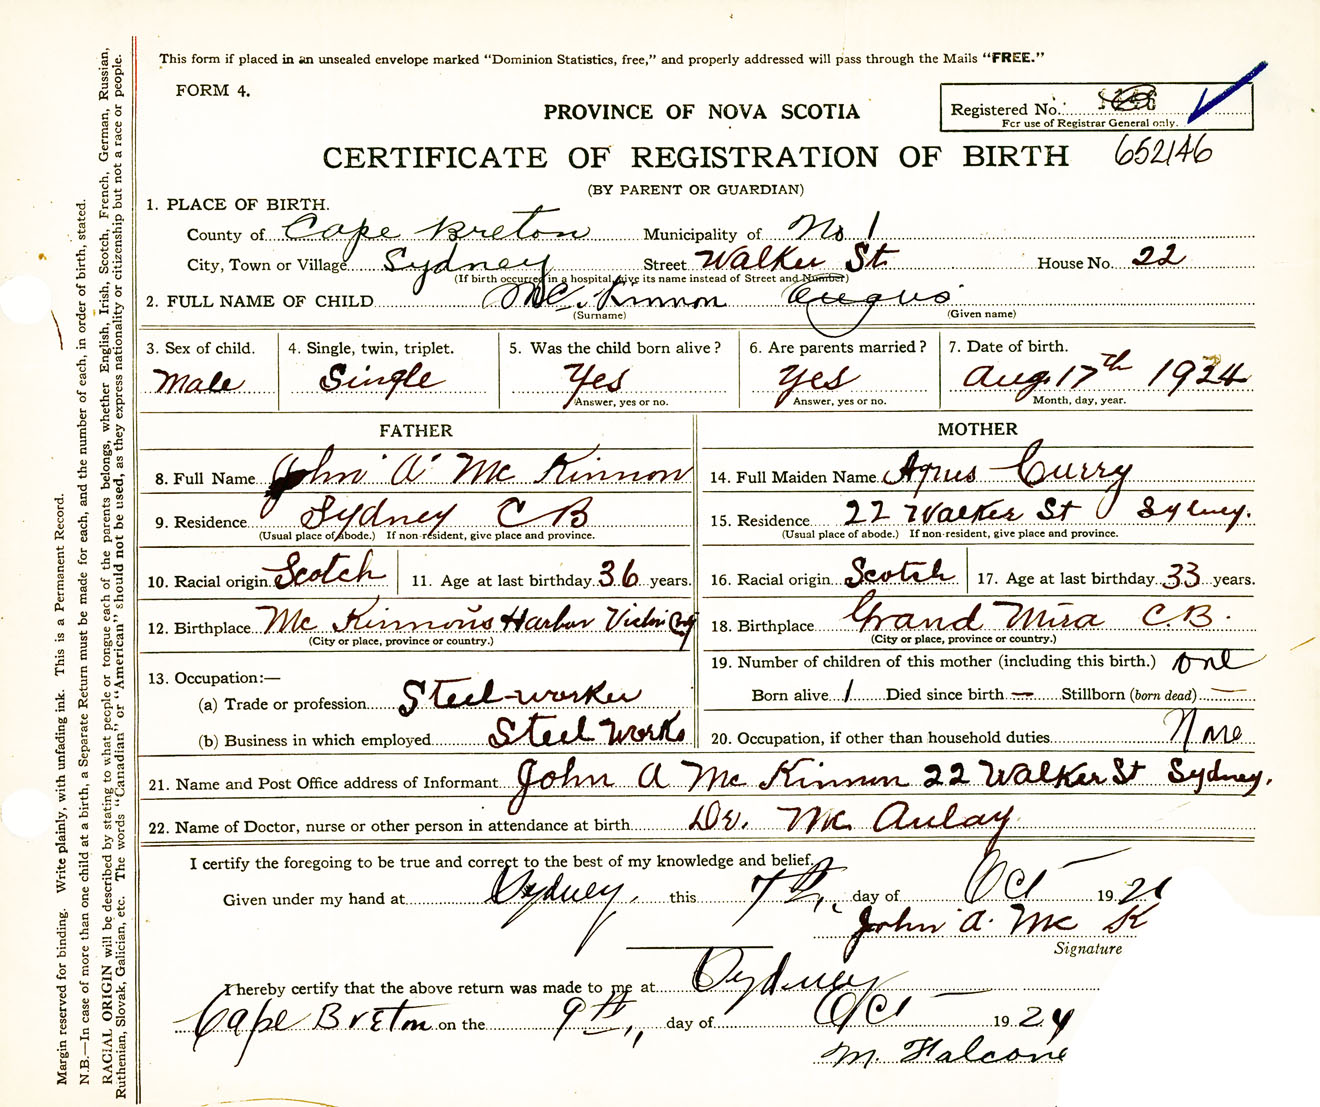 This form if placed in an unsealed envelope marked "Dominion Statistics, free," and properly addressed will pass through the Mails "FREE."
FORM 4.
Registered No.
For use of Registrar General only.
PROVINCE OF NOVA SCOTIA
CERTIFICATE OF REGISTRATION OF BIRTH 652146
(BY PARENT OR GUARDIAN)
1. PLACE OF BIRTH.
County of Cape Breton Municipality of No 1
City, Town or Village Sydney Street Walker St House No. 22
(If birth occurred in a hospital, give its name instead of Street and Number)
2. FULL NAME OF CHILD McKinnon Angus
(Surname) (Given name)
3. Sex of child. 4. Single, twin, triplet. 5. Was the child born alive? 6. Are parents married? 7. Date of birth.
Male Single Yes Yes Aug 17th 1924
Answer, yes or no. Answer, yes or no. Month, day, year.
FATHER MOTHER
8. Full Name John A Mc Kinnon 14. Full Maiden Name Agnus Curry
9. Residence Sydney C B 15. Residence 22 Walker St Sydney.
(Usual place of abode.) If non-resident, give place and province. (Usual place of abode.) If non-resident, give place and province.
10. Racial origin Scotch 11. Age at last birthday 36 years. 16. Racial origin Scotch 17. Age at last birthday 33 years.
12. Birthplace Mc Kinnons Harbor Victori Co 18. Birthplace Grand Mira C.B.
(City or place, province or country.) (City or place, province or country.)
13. Occupation:— 19. Number of children of this mother (including this birth.) one
(a) Trade or profession Steel-worker Born alive 1 Died since birth — Stillborn (born dead) —
(b) Business in which employed Steel Works 20. Occupation, if other than household duties None
21. Name and Post Office address of Informant John A Mc Kinnon 22 Walker St Sydney.
22. Name of Doctor, nurse or other person in attendance at birth Dr. Mc Aulay
I certify the foregoing to be true and correct to the best of my knowledge and belief.
Given under my hand at Sydney, this 7th day of Oct 19 2
John A. Mc K
Signature
I hereby certify that the above return was made to me at Sydney
Cape Breton on the 9th day of Oct 19 24
M. Falcone
Margin reserved for binding. Write plainly, with unfading ink. This is a Permanent Record.
N.B.—In case of more than one child at a birth, a Separate Return must be made for each, and the number of each, in order of birth, stated.
RACIAL ORIGIN will be described by stating to what people or tongue each of the parents belongs, whether English, Irish, Scotch, French, German, Russian,
Ruthenian, Slovak, Galician, etc. The words "Canadian" or "American" should not be used, as they express nationality or citizenship but not a race or people.